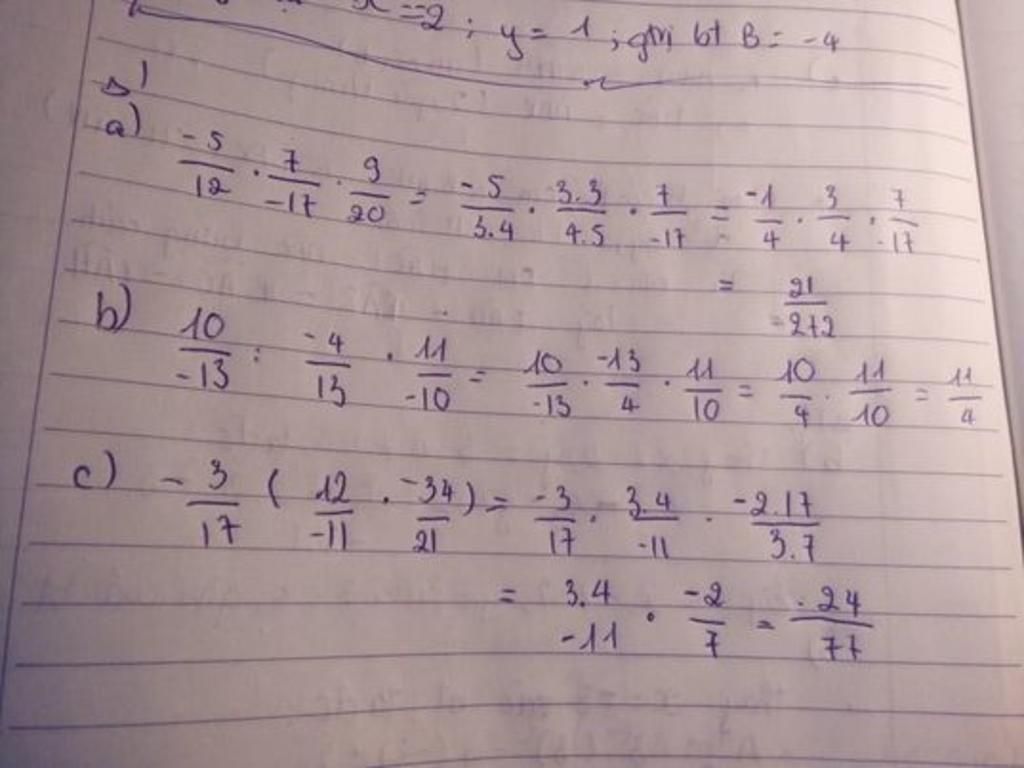 x = 2 ; y = 1 ; gtri bt B = -4
a) -5/12 . 7/-17 . 9/20 = -5/3.4 . 3.3/4.5 . 7/-17 = -1/4 . 3/4 . 7/-17
= 21/-272
b) 10/-13 : -4/13 . 11/-10 = 10/-13 . -13/4 . 11/10 = 10/4 . 11/10 = 11/4
c) - 3/17 ( 12/-11 . -34/21 ) = -3/17 . 3.4/-11 . -2.17/3.7
= 3.4/-11 . -2/7 = -24/77